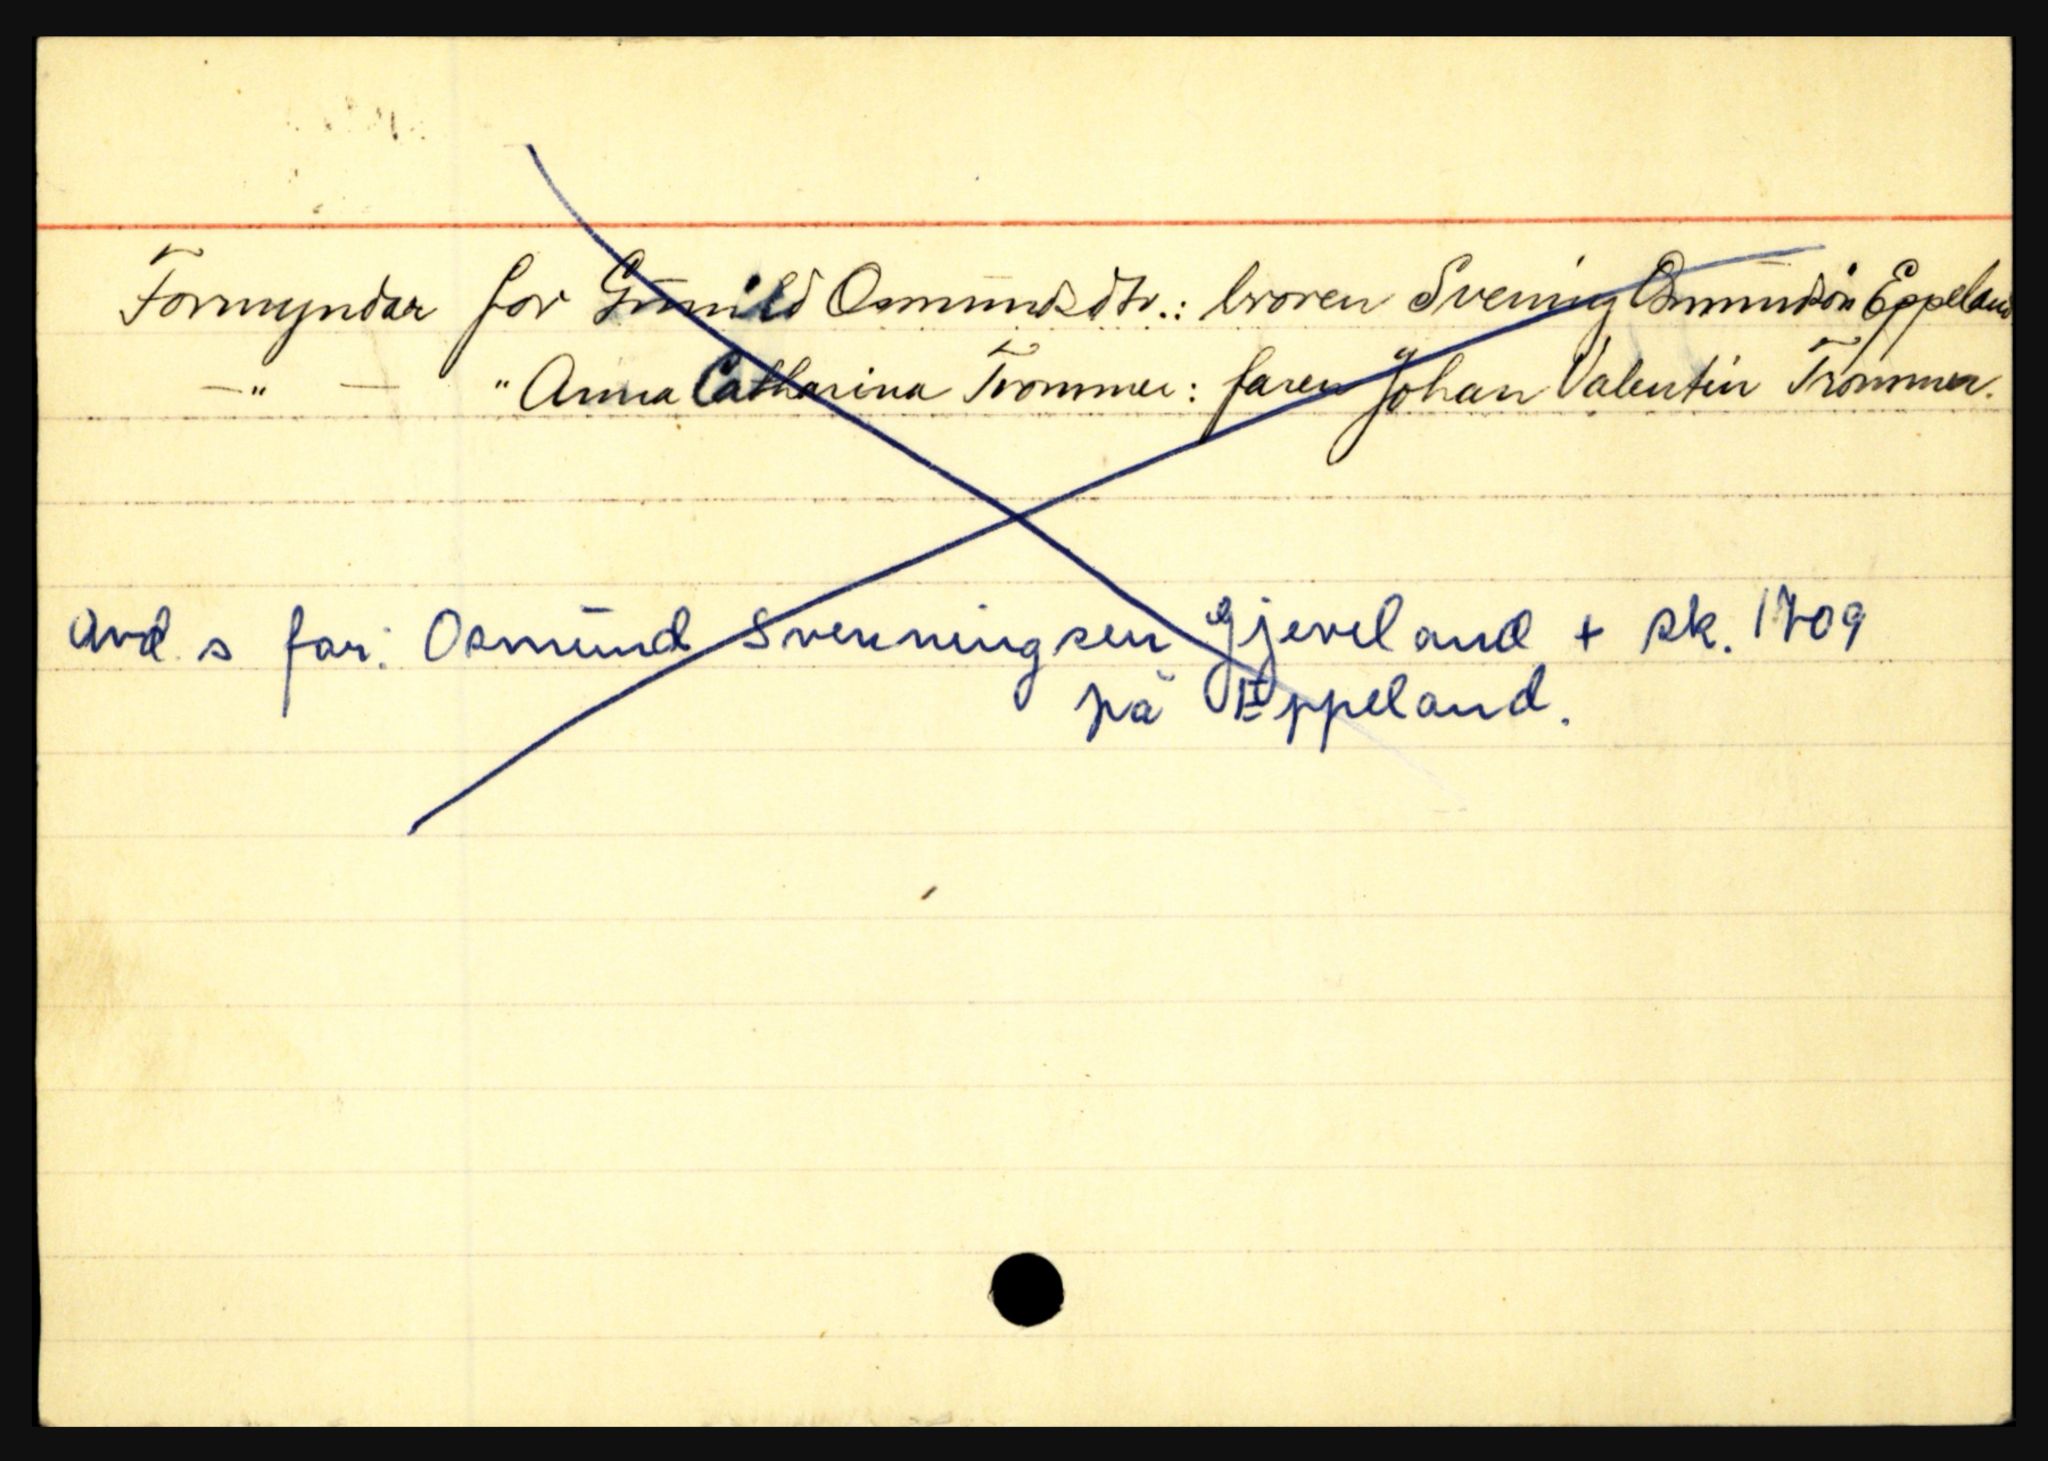 Formyndar for Gunild Osmundsdtr.: broren Svening Osmundsøn Eppeland
—"— " Anna Catharina Trommer: faren Johan Valentin Trommer.
Avd. s far: Osmund Svenningsen Gjeveland + sk. 1709
på Eppeland.